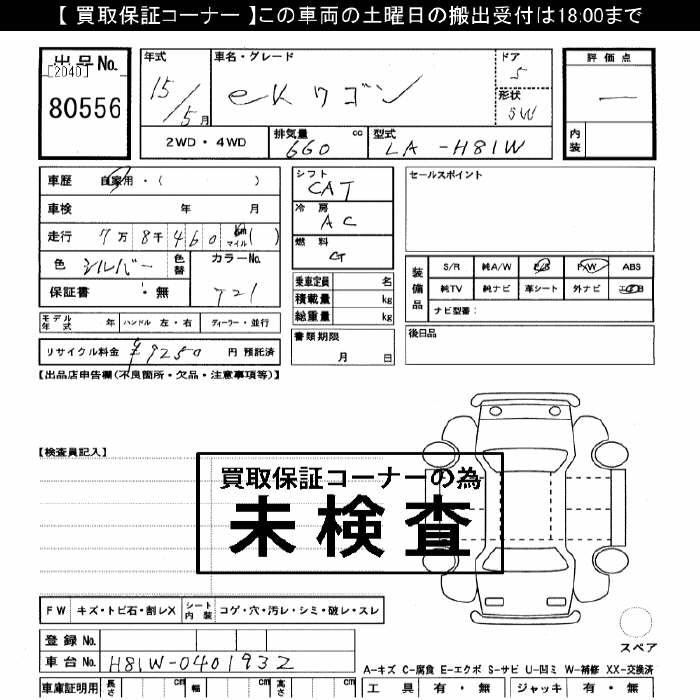 【 買取保証コーナー 】この車両の土曜日の搬出受付は18:00まで
出品No.
[2040]
80556
年式
15/5月
車名・グレード
eKワゴン
ドア
5
形状
SW
評価点
—
内装
2WD・4WD
排気量
660
cc
型式
LA-H81W
車歴 自家用・( )
車検 年 月
走行 7万 8千 460 km マイル ( )
色 シルバー 色替 カラーNo.
保証書 ・無 T21
モデル年式 年 ハンドル 左・右 ディーラー・並行
リサイクル料金 ¥9250 円 預託済
シフト
CAT
冷房
AC
燃料
G
乗車定員 名
積載量 kg
総重量 kg
書類期限
月 日
セールスポイント
装備品
S/R 純A/W P/S P/W ABS
純TV 純ナビ 革シート 外ナビ
ナビ型番:
後日品
【出品店申告欄(不良箇所・欠品・注意事項等)】
【検査員記入】
買取保証コーナーの為
未検査
FW キズ・トビ石・割レX シート内装 コゲ・穴・汚レ・シミ・破レ・スレ
スペア
登録No.
車台No. H81W-0401932
A-キズ C-腐食 E-エクボ S-サビ U-凹ミ W-補修 XX-交換済
車庫証明用 長さ cm 幅 cm 高さ cm
工具 有・無 ジャッキ 有・無